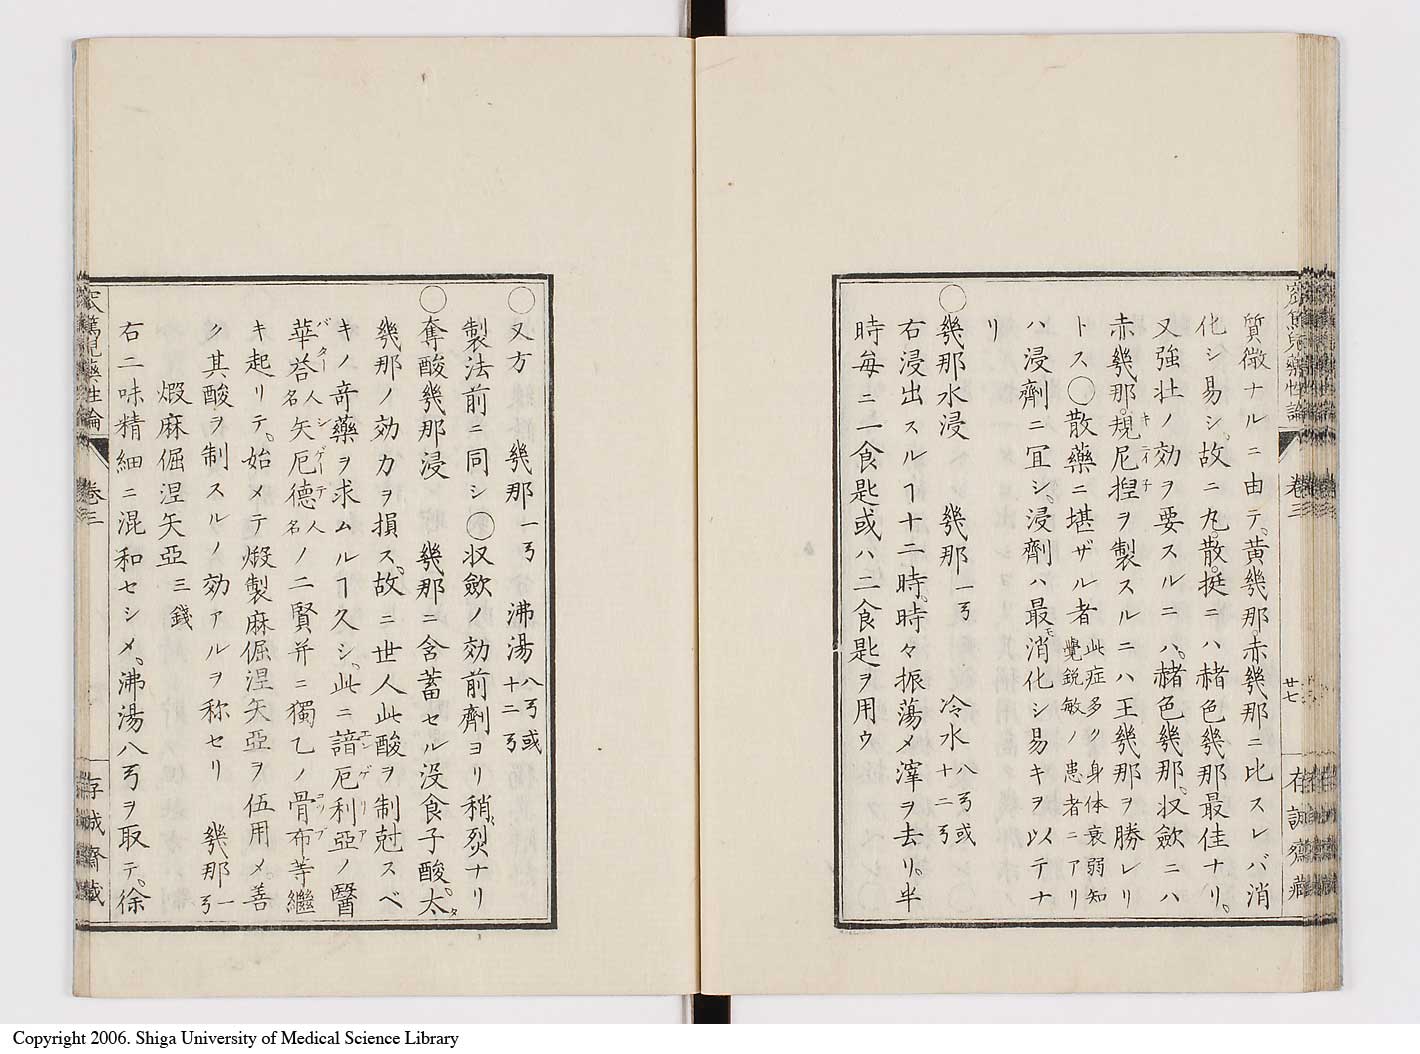 質微ナルニ由テ。黄幾那。赤幾那ニ比スレバ消
化シ易シ。故ニ丸。散。挺ニハ赭色幾那最佳ナリ。
又強壮ノ効ヲ要スルニハ。赭色幾那。収歛ニハ
赤幾那。規尼捏ヲ製スルニハ王幾那ヲ勝レリ
キニイ子
トス◯散藥ニ堪ザル者此症多ク身体衰弱知覺鋭敏ノ患者ニアリ
ハ浸劑ニ冝シ。浸劑ハ最モ消化シ易キヲ以テナ
リ
◯幾那水浸 幾那一ヲ 冷水八ヲ或十二ヲ
右浸出スルヿ十二時。時々振蕩メ滓ヲ去リ。半
時毎ニ一食匙或ハ二食匙ヲ用ウ
卷三
廿七
存誠齋藏
◯又方 幾那一ヲ 沸湯八ヲ或十二ヲ
製法前ニ同シ◯収歛ノ効前劑ヨリ稍烈ナリ
◯奪酸幾那浸 幾那ニ含蓄セル没食子酸。太タ
幾那ノ効力ヲ損ス。故ニ世人此酸ヲ制尅スベ
キノ竒藥ヲ求ムルヿ久シ。此ニ諳厄利亞ノ醫
エンゲリア
華荅人名矢厄德人名ノ二賢并ニ獨乙ノ骨布等繼
バター シゲーテ コップ
キ起リテ。始メテ煅製麻倔涅矢亞ヲ伍用メ。善
ク其酸ヲ制スルノ効アルヲ称セリ 幾那一ヲ
煆麻倔涅矢亞三錢
右二味精細ニ混和セシメ。沸湯八ヲヲ取テ。徐
藥性論
卷三
存誠齋藏
Copyright 2006. Shiga University of Medical Science Library